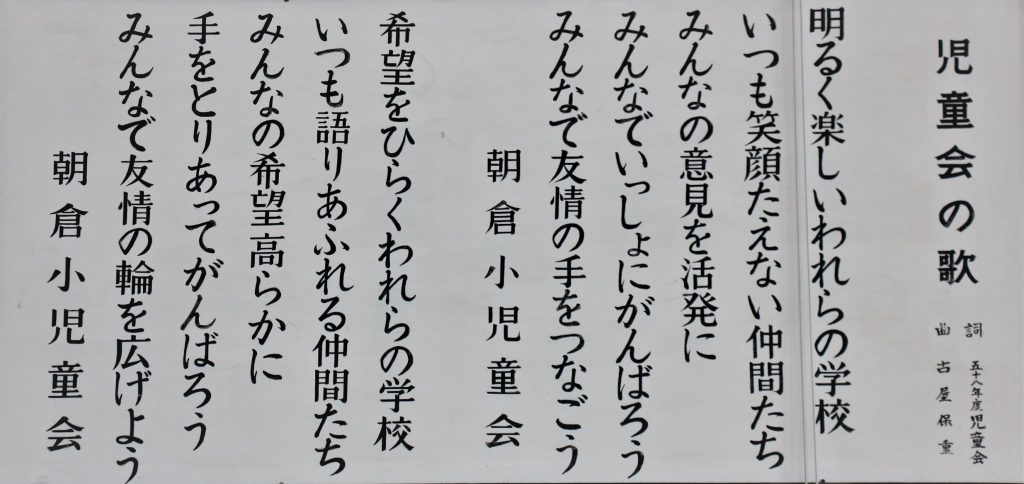 児童会の歌
詞 五十八年度児童会
曲 古屋保重
明るく楽しいわれらの学校
いつも笑顔たえない仲間たち
みんなの意見を活発に
みんなでいっしょにがんばろう
みんなで友情の手をつなごう
朝倉小児童会
希望をひらくわれらの学校
いつも語りあふれる仲間たち
みんなの希望高らかに
手をとりあってがんばろう
みんなで友情の輪を広げよう
朝倉小児童会